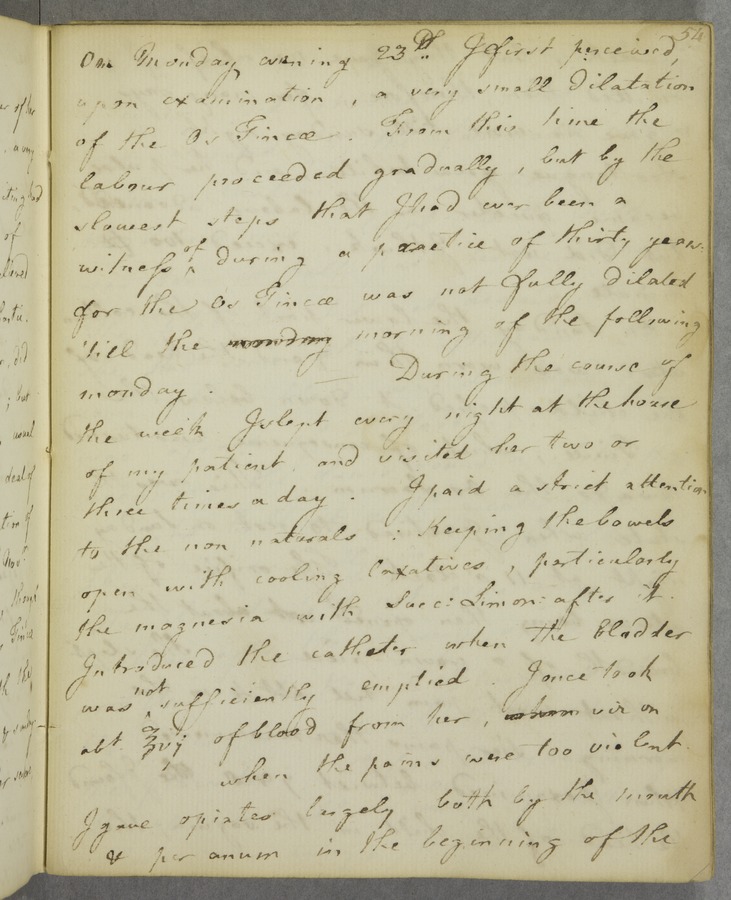 54
On Monday evening 23d. I first perceived,
upon examination, a very small dilatation
of the Os Tincæ. From this time the
labour proceeded gradually, but by the
slowest steps that I had ever been a
witness of during a practice of thirty years.
for the Os Tincæ was not fully dilated
'till the monday morning of the following
monday. — During the course of
the week I slept every night at the house
of my patient and visited her two or
three times a day. I paid a strict attention
to the non naturals: Keeping the bowels
open with cooling laxatives, particularly
the magnesia with Succ: Limon: after it.
Introduced the catheter when the bladder
was not sufficiently emptied. I once took
abt. ℥vj of blood from her, when viz on
when the pains were too violent.
I gave opiates largely both by the mouth
& per anum in the beginning of the